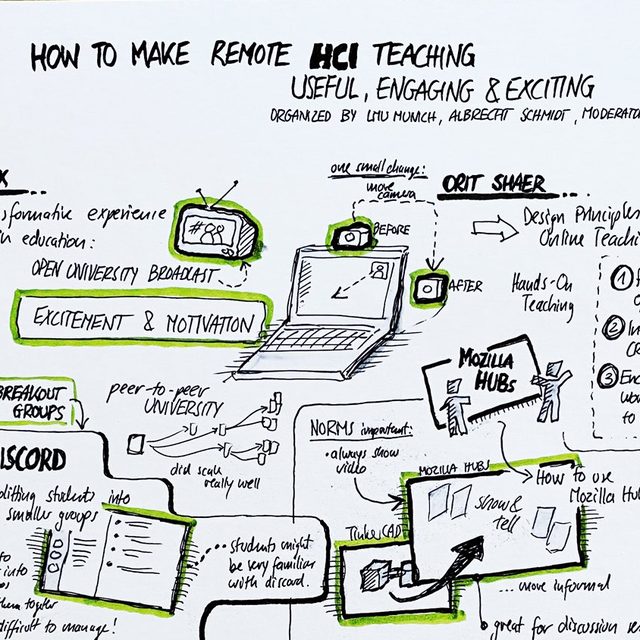 HOW TO MAKE REMOTE HCI TEACHING
USEFUL, ENGAGING & EXCITING
ORGANIZED BY LMU MUNICH, ALBRECHT SCHMIDT, MODERATO
X
sformative experience
in education:
OPEN UNIVERSITY BROADCAST
EXCITEMENT & MOTIVATION
one small change:
move
camera
BEFORE
AFTER
ORIT SHAER
Design Principles
Online Teachi
Hands-On
Teaching
1
2 In
3 En
to
MOZILLA
HUBS
BREAKOUT
GROUPS
peer-to-peer
UNIVERSITY
did scale
really well
ISCORD
litting students into
smaller groups
to
into
them together
difficult to manage!
students might
be very familiar
with discord.
NORMS important:
• always show
video
MOZILLA HUBS
show &
tell
TinkerCAD
How to use
Mozilla Hu
... more informal
great for discussion se